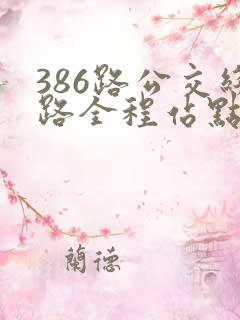 386路公交线
路全程佔點
蘭德